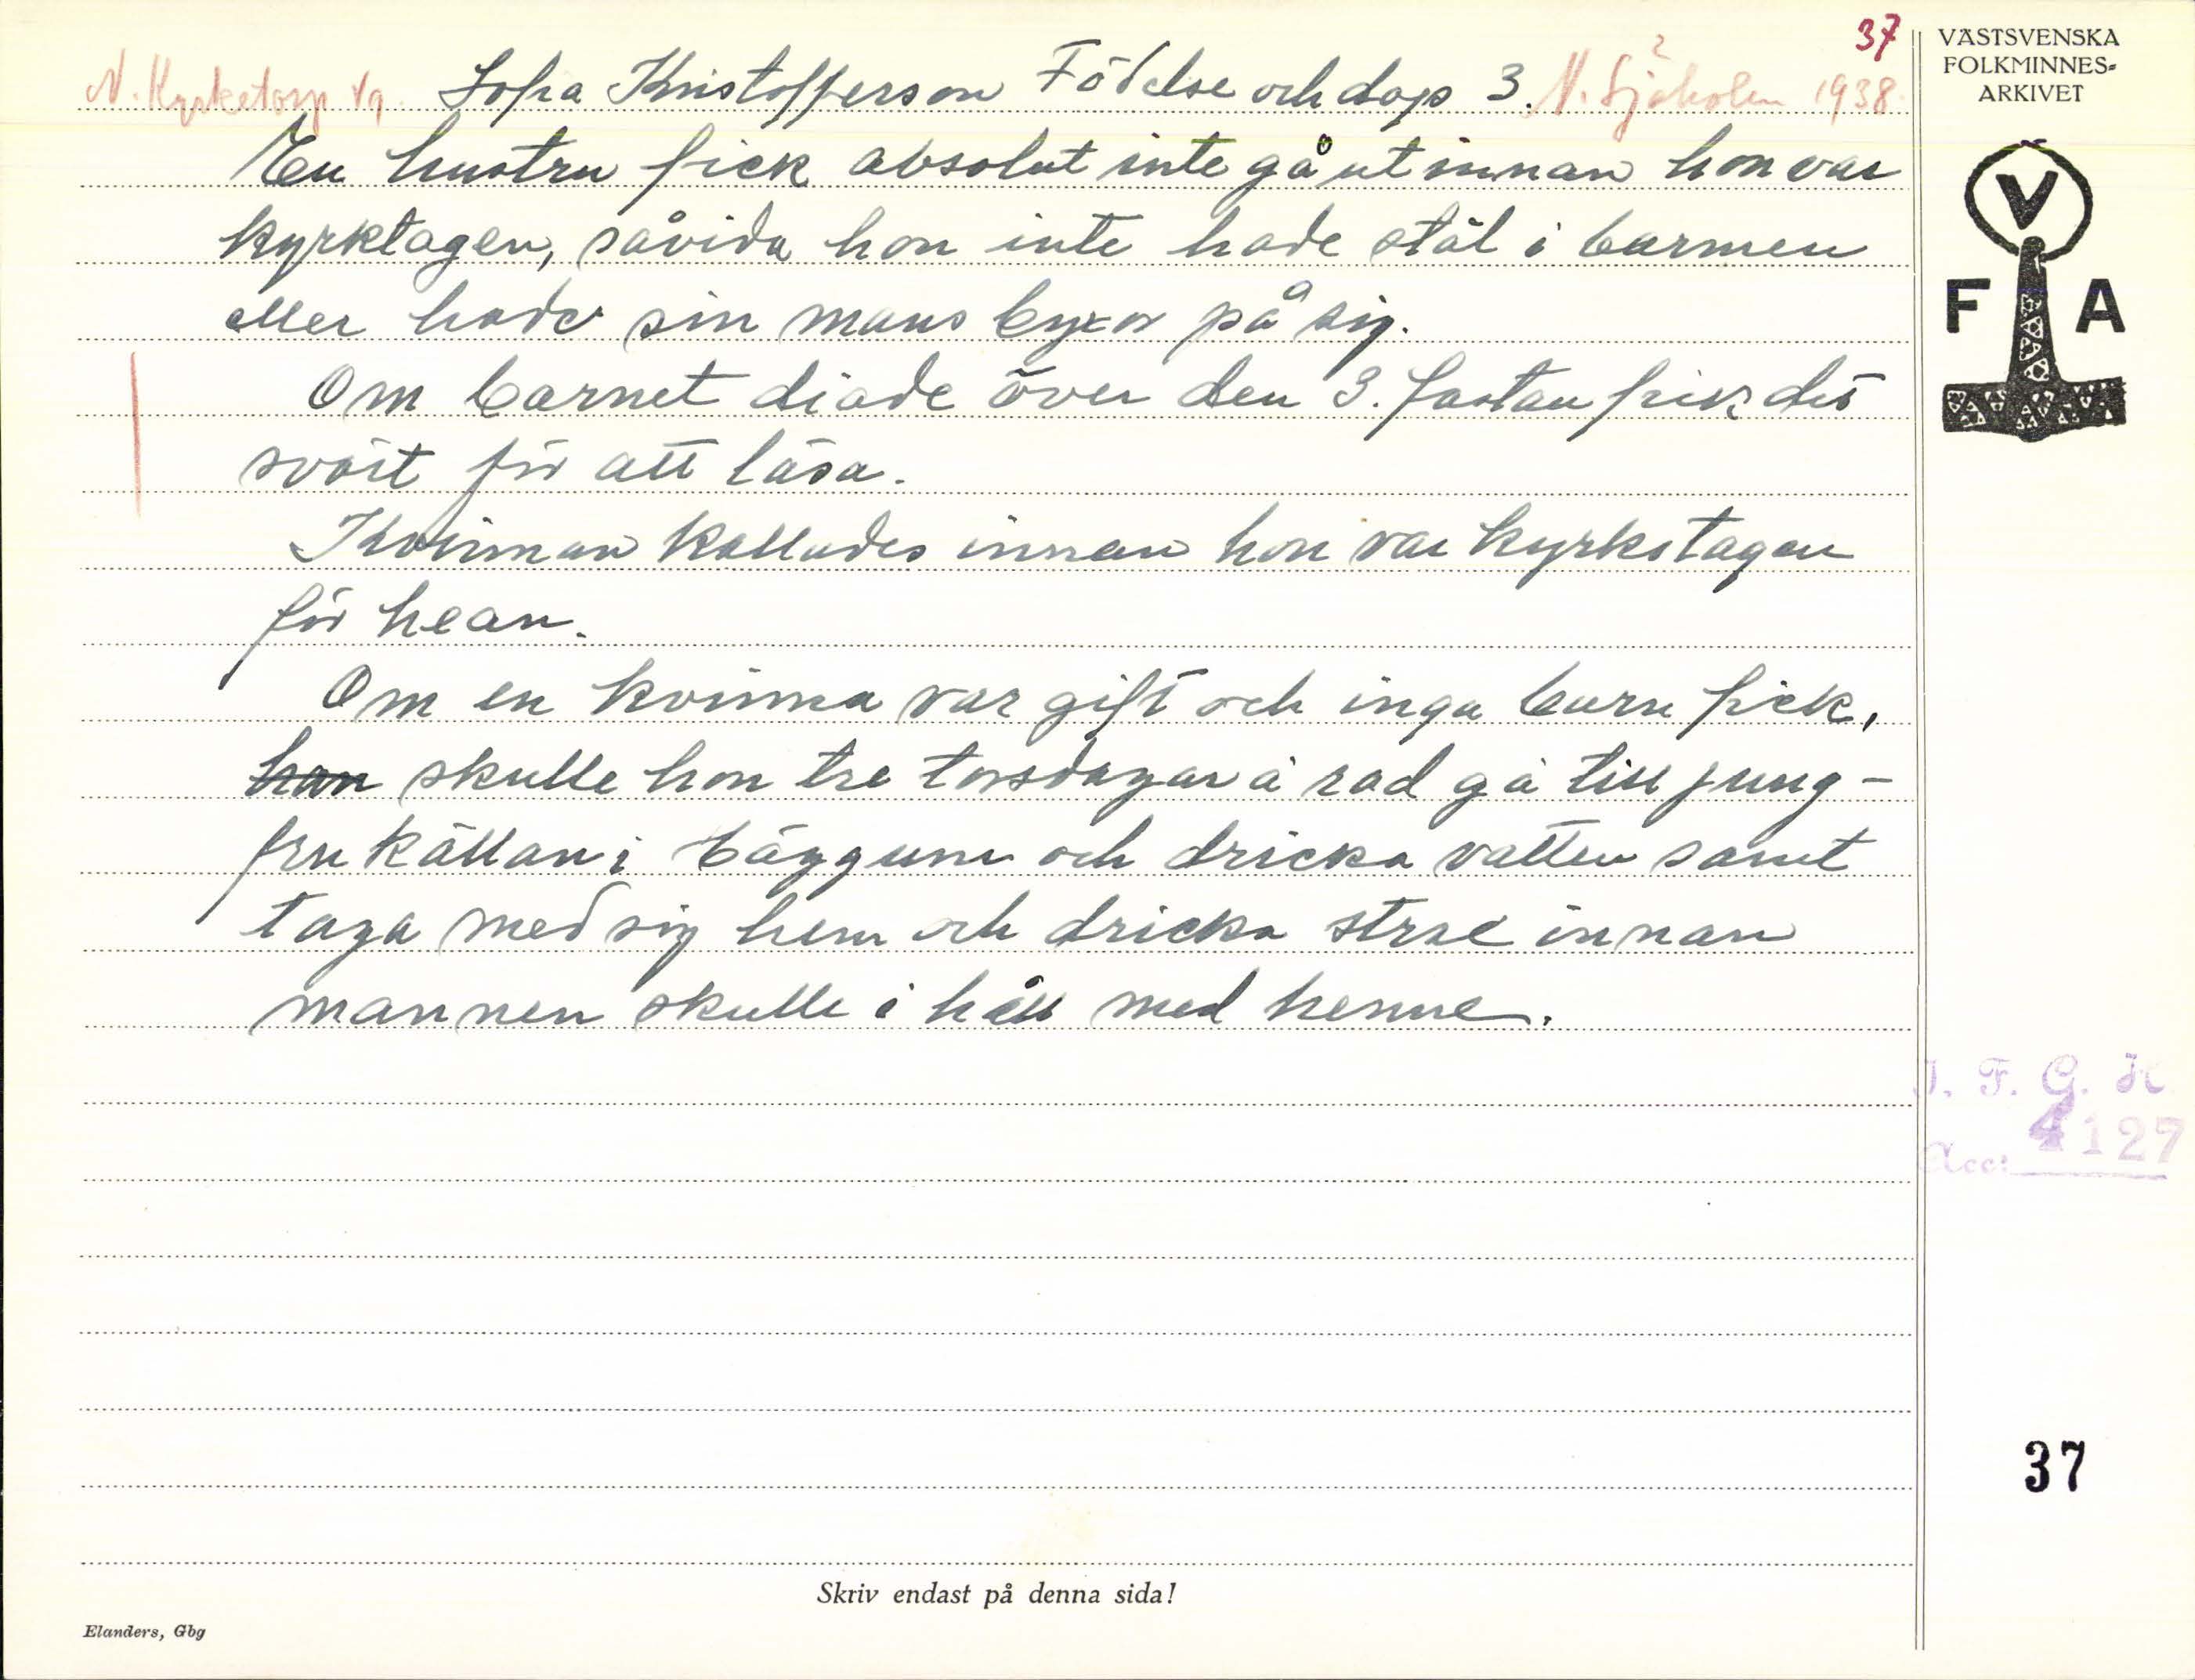 37
N. Kyrketorp Vg. Sofia Kristofferson Födelse och dop 3. N. Sjöholm 1938.
En hustru fick absolut inte gå ut innan hon var
kyrktagen, såvida hon inte hade stål i barmen
eller hade sin mans byxor på sig.
Om barnet diade över den 3. fastan fick det
svårt för att läsa.
Kvinnan kallades innan hon var kyrkotagen
för hean.
Om en kvinna var gift och inga barn fick,
hon skulle hon tre torsdagar å rad gå till jung-
fru källan i Bäggum och dricka vatten samt
taga med sig hem och dricka strax innan
mannen skulle i håll med henne.
VÄSTSVENSKA
FOLKMINNES-
ARKIVET
V
F A
I. F. G. H
4127
Acc:
37
Skriv endast på denna sida!
Elanders, Gbg